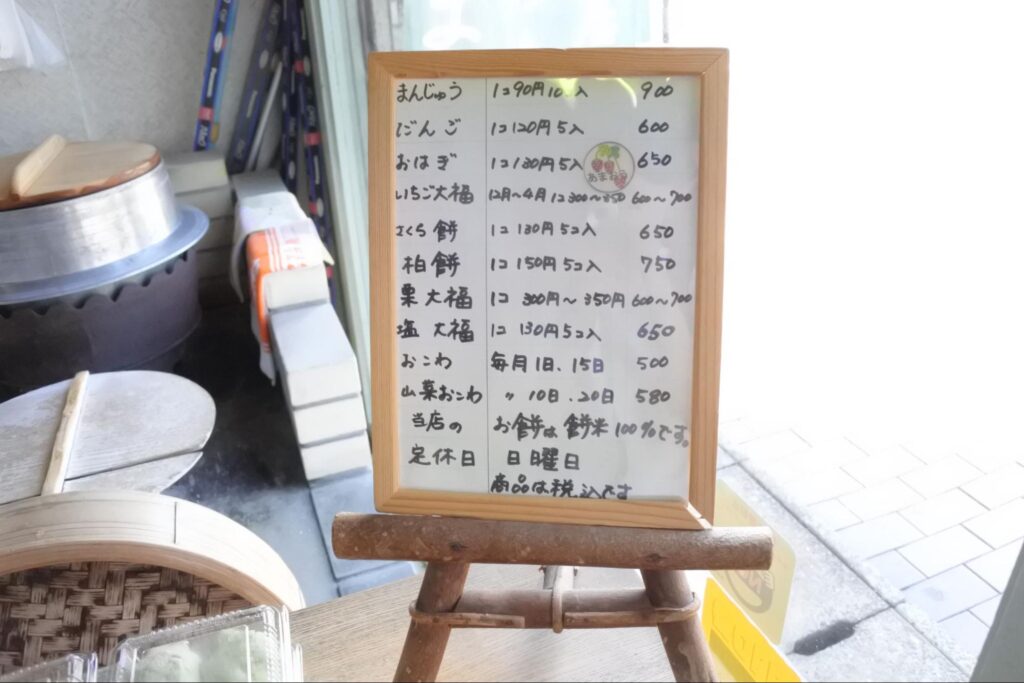 まんじゅう 1コ90円10コ入 900
だんご 1コ120円5入 600
おはぎ 1コ130円5入 650
いちご大福 12月〜4月 1コ300〜350 600〜700
さくら餅 1コ 130円5コ入 650
柏餅 1コ 150円5コ入 750
栗大福 1コ 300円〜350円 600〜700
塩大福 1コ 130円5コ入 650
おこわ 毎月1日、15日 500
山菜おこわ 〃 10日、20日 580
当店の お餅は餅米100%です。
定休日 日曜日
商品は税込です